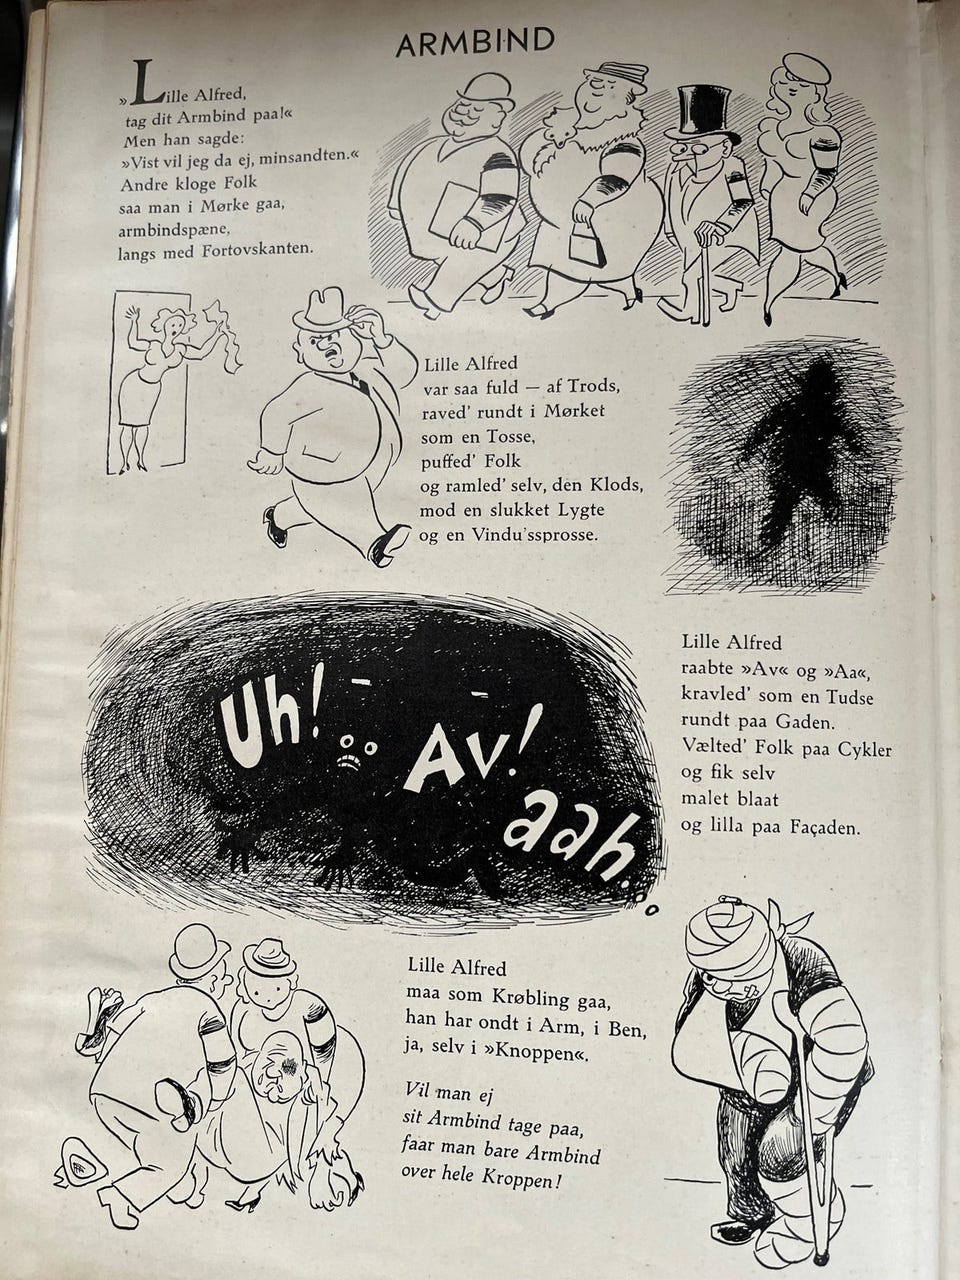 ARMBIND
»Lille Alfred,
tag dit Armbind paa!«
Men han sagde:
»Vist vil jeg da ej, minsandten.«
Andre kloge Folk
saa man i Mørke gaa,
armbindspæne,
langs med Fortovskanten.
Lille Alfred
var saa fuld — af Trods,
raved' rundt i Mørket
som en Tosse,
puffed' Folk
og ramled' selv, den Klods,
mod en slukket Lygte
og en Vindu'ssprosse.
Uh!
Av!
aah.
Lille Alfred
raabte »Av« og »Aa«,
kravled' som en Tudse
rundt paa Gaden.
Vælted' Folk paa Cykler
og fik selv
malet blaat
og lilla paa Façaden.
Lille Alfred
maa som Krøbling gaa,
han har ondt i Arm, i Ben,
ja, selv i »Knoppen«.
Vil man ej
sit Armbind tage paa,
faar man bare Armbind
over hele Kroppen!